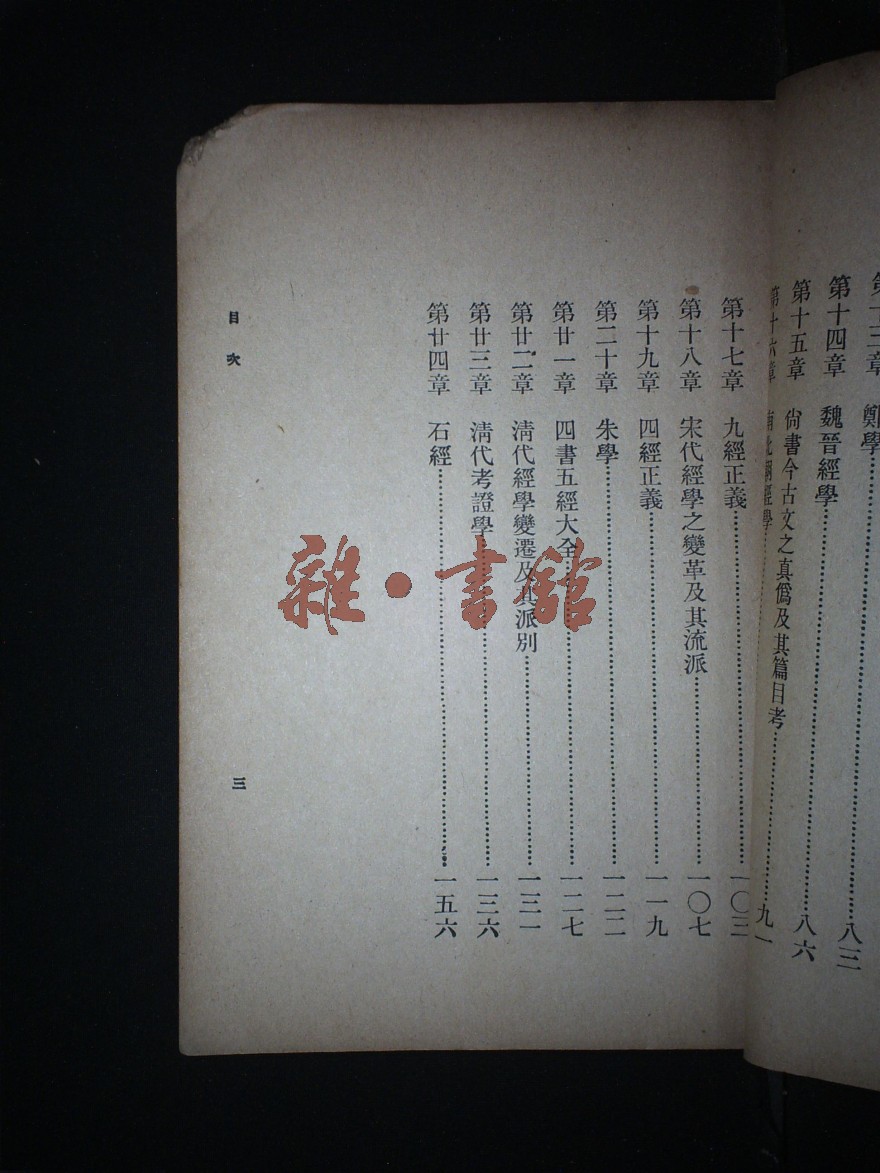 第十三章　鄭學
第十四章　魏晉經學……八三
第十五章　尙書今古文之真僞及其篇目考……八六
第十六章　南北朝經學……九一
第十七章　九經正義……一〇三
第十八章　宋代經學之變革及其流派……一〇七
第十九章　四經正義……一一九
第二十章　朱學……一二二
第廿一章　四書五經大全……一二七
第廿二章　淸代經學變遷及其派別……一三一
第廿三章　淸代考證學……一三六
第廿四章　石經……一五六
目次
三
雜·書館